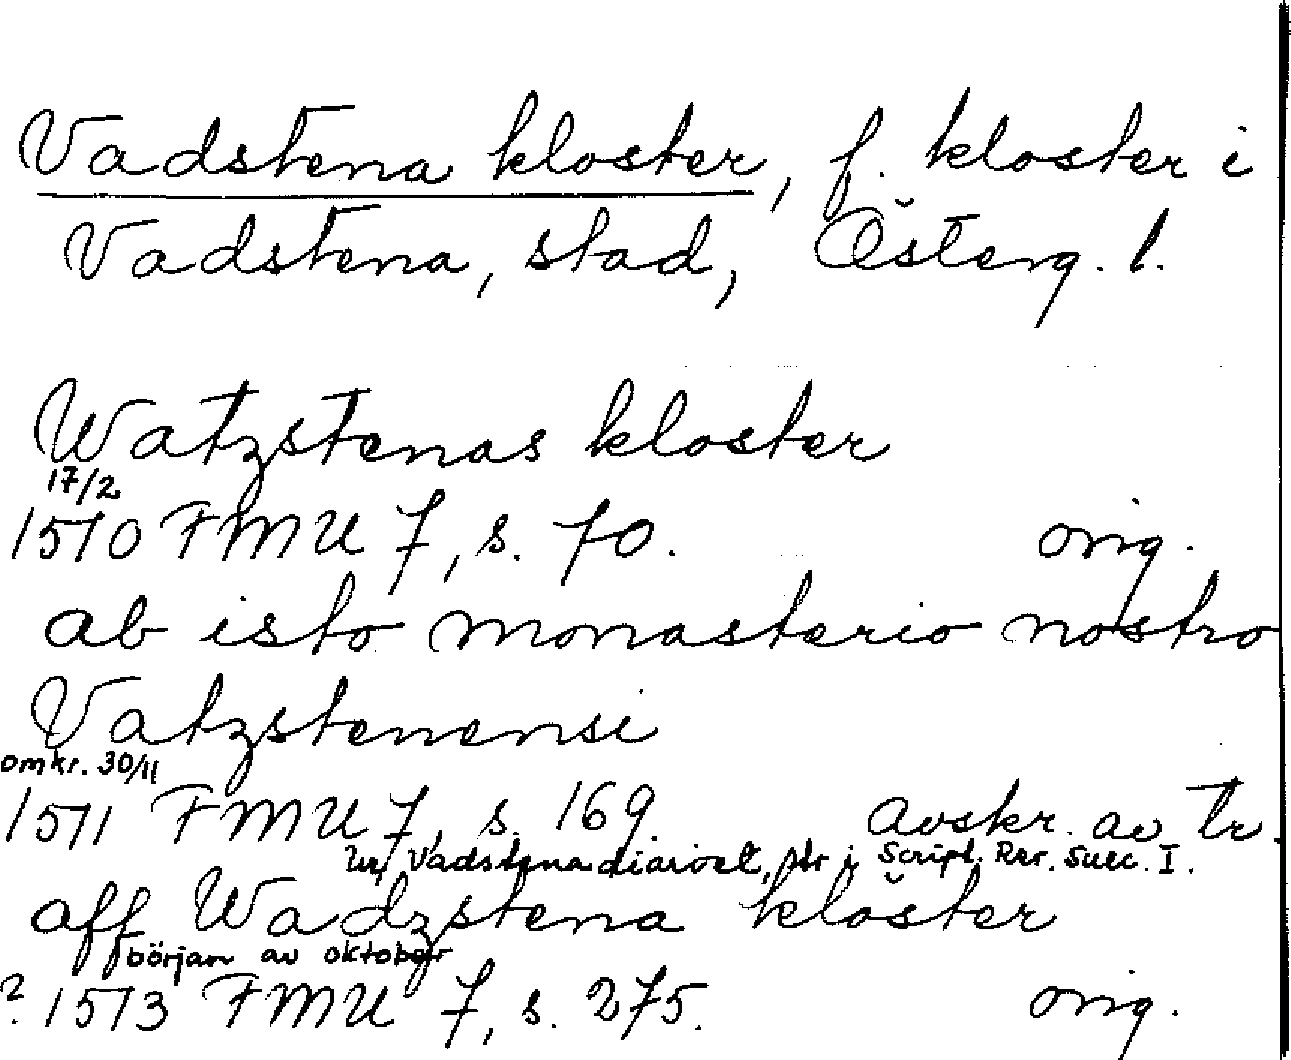 Vadstena kloster, f. kloster i
Vadstena, stad, Österg. l.
Watzstenas kloster
17/2
1510 FMU 7, s. 70. orig.
ab isto monasterio nostro
Vatzstenensi
omkr. 30/11
1511 FMU 7, s. 169. avskr. av tr.
ur Vadstenadiariet, tr i Script. Rer. Suec. I.
aff Wadzstena klöster
början av oktober
? 1513 FMU 7, s. 275. orig.